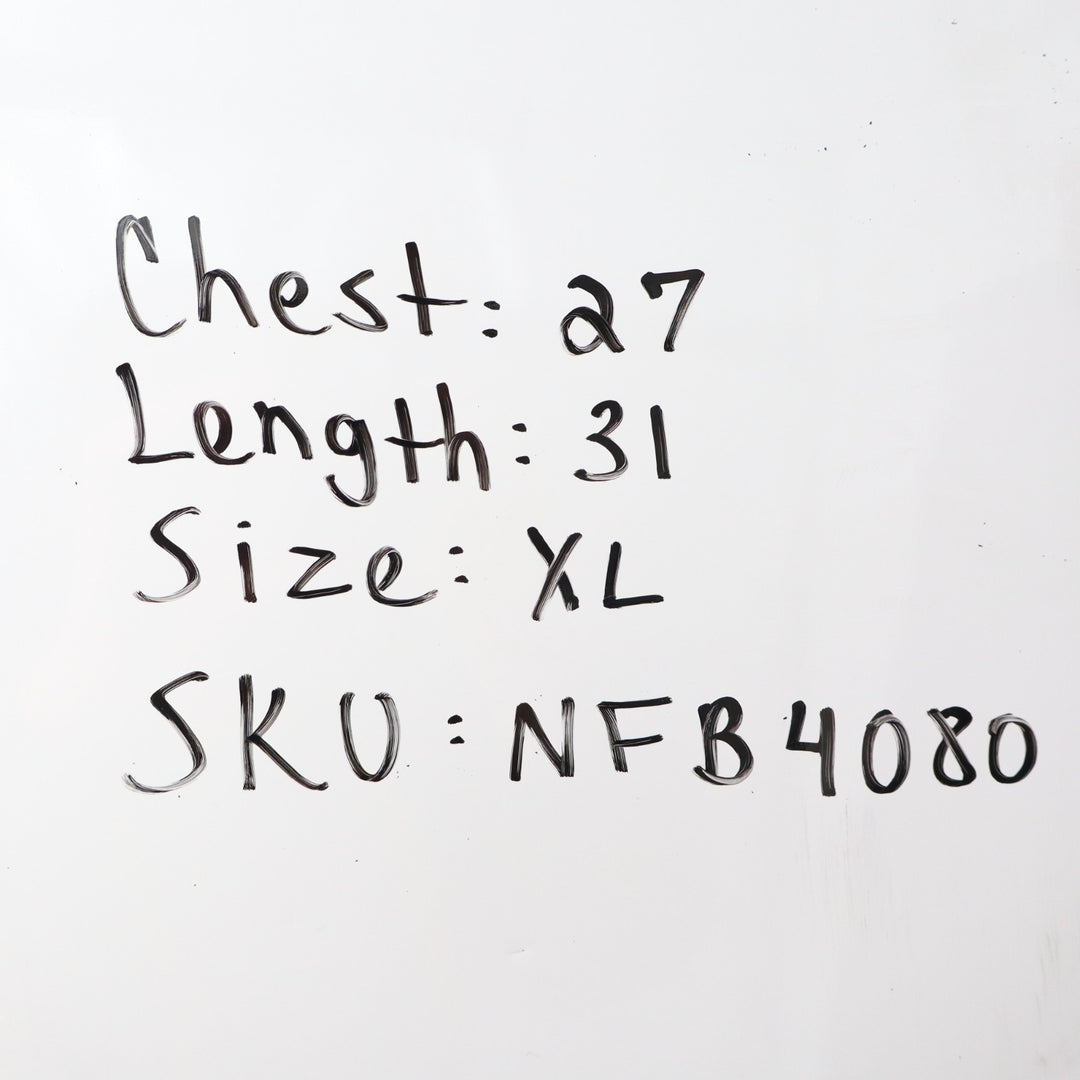 Chest: 27
Length: 31
Size: XL
SKU: NFB4080